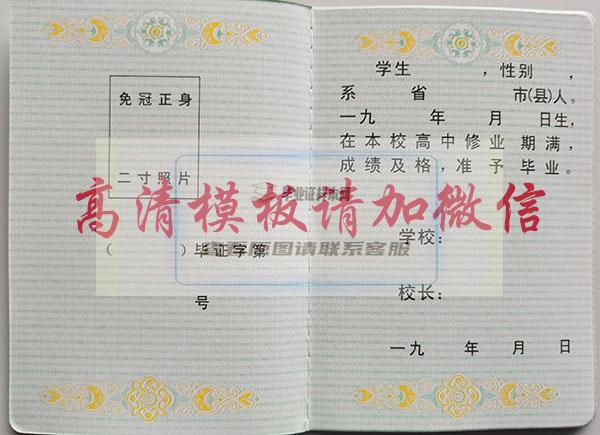 免冠正身
二寸照片
(        )毕证字第
号
学生        ,性别    ,
系    省        市(县)人。
一九    年    月    日生,
在本校高中修业期满,
成绩及格,准予毕业。
学校:
校长:
一九    年    月    日
高清模板请加微信
图请联系客服